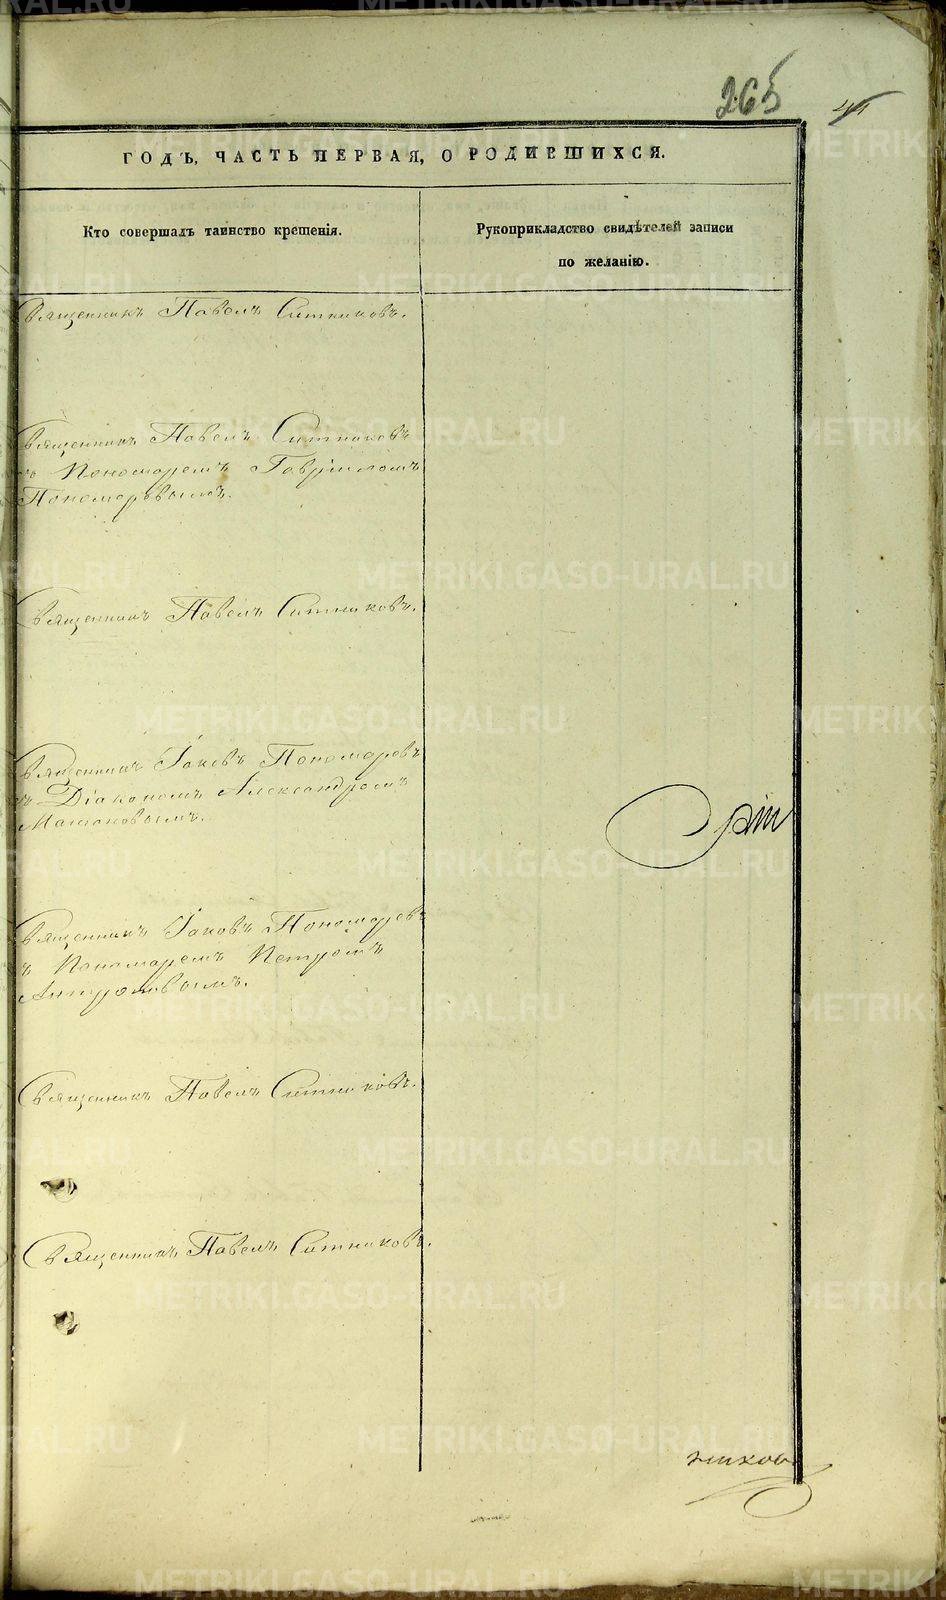 265
ГОДЪ, ЧАСТЬ ПЕРВАЯ, О РОДИВШИХСЯ.
Кто совершалъ таинство крещенія.
Рукоприкладство свидѣтелей записи
по желанію.
Священникъ Павелъ Ситниковъ.
Священникъ Павелъ Ситниковъ
съ Пономаремъ Гавріиломъ
Пономаревымъ.
Священникъ Павелъ Ситниковъ.
Священникъ Іаковъ Пономаревъ
съ Діакономъ Александромъ
Священникъ Іаковъ Пономаревъ
съ Пономаремъ Петромъ
Антроповымъ.
Священникъ Павелъ Ситниковъ.
Священникъ Павелъ Ситниковъ.
никовъ
METRIKI.GASO-URAL.RU